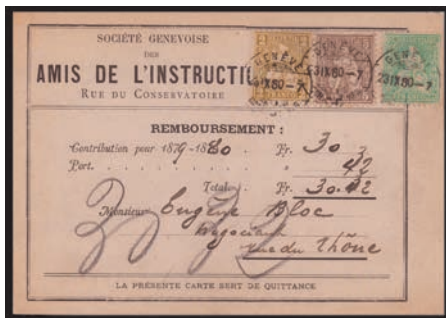 SOCIÉTÉ GENEVOISE
DES
AMIS DE L'INSTRUCTI
RUE DU CONSERVATOIRE
GENÈVE
23 IX 80-7
GENÈVE
23 IX 80-7
GENÈVE
23 IX 80-7
REMBOURSEMENT :
Contribution pour 1879-1880 Fr. 30
Port. 42
Total: Fr. 30.42
Monsieur Eugène Bloc
Negociant
rue du Rhône
LA PRÉSENTE CARTE SERT DE QUITTANCE